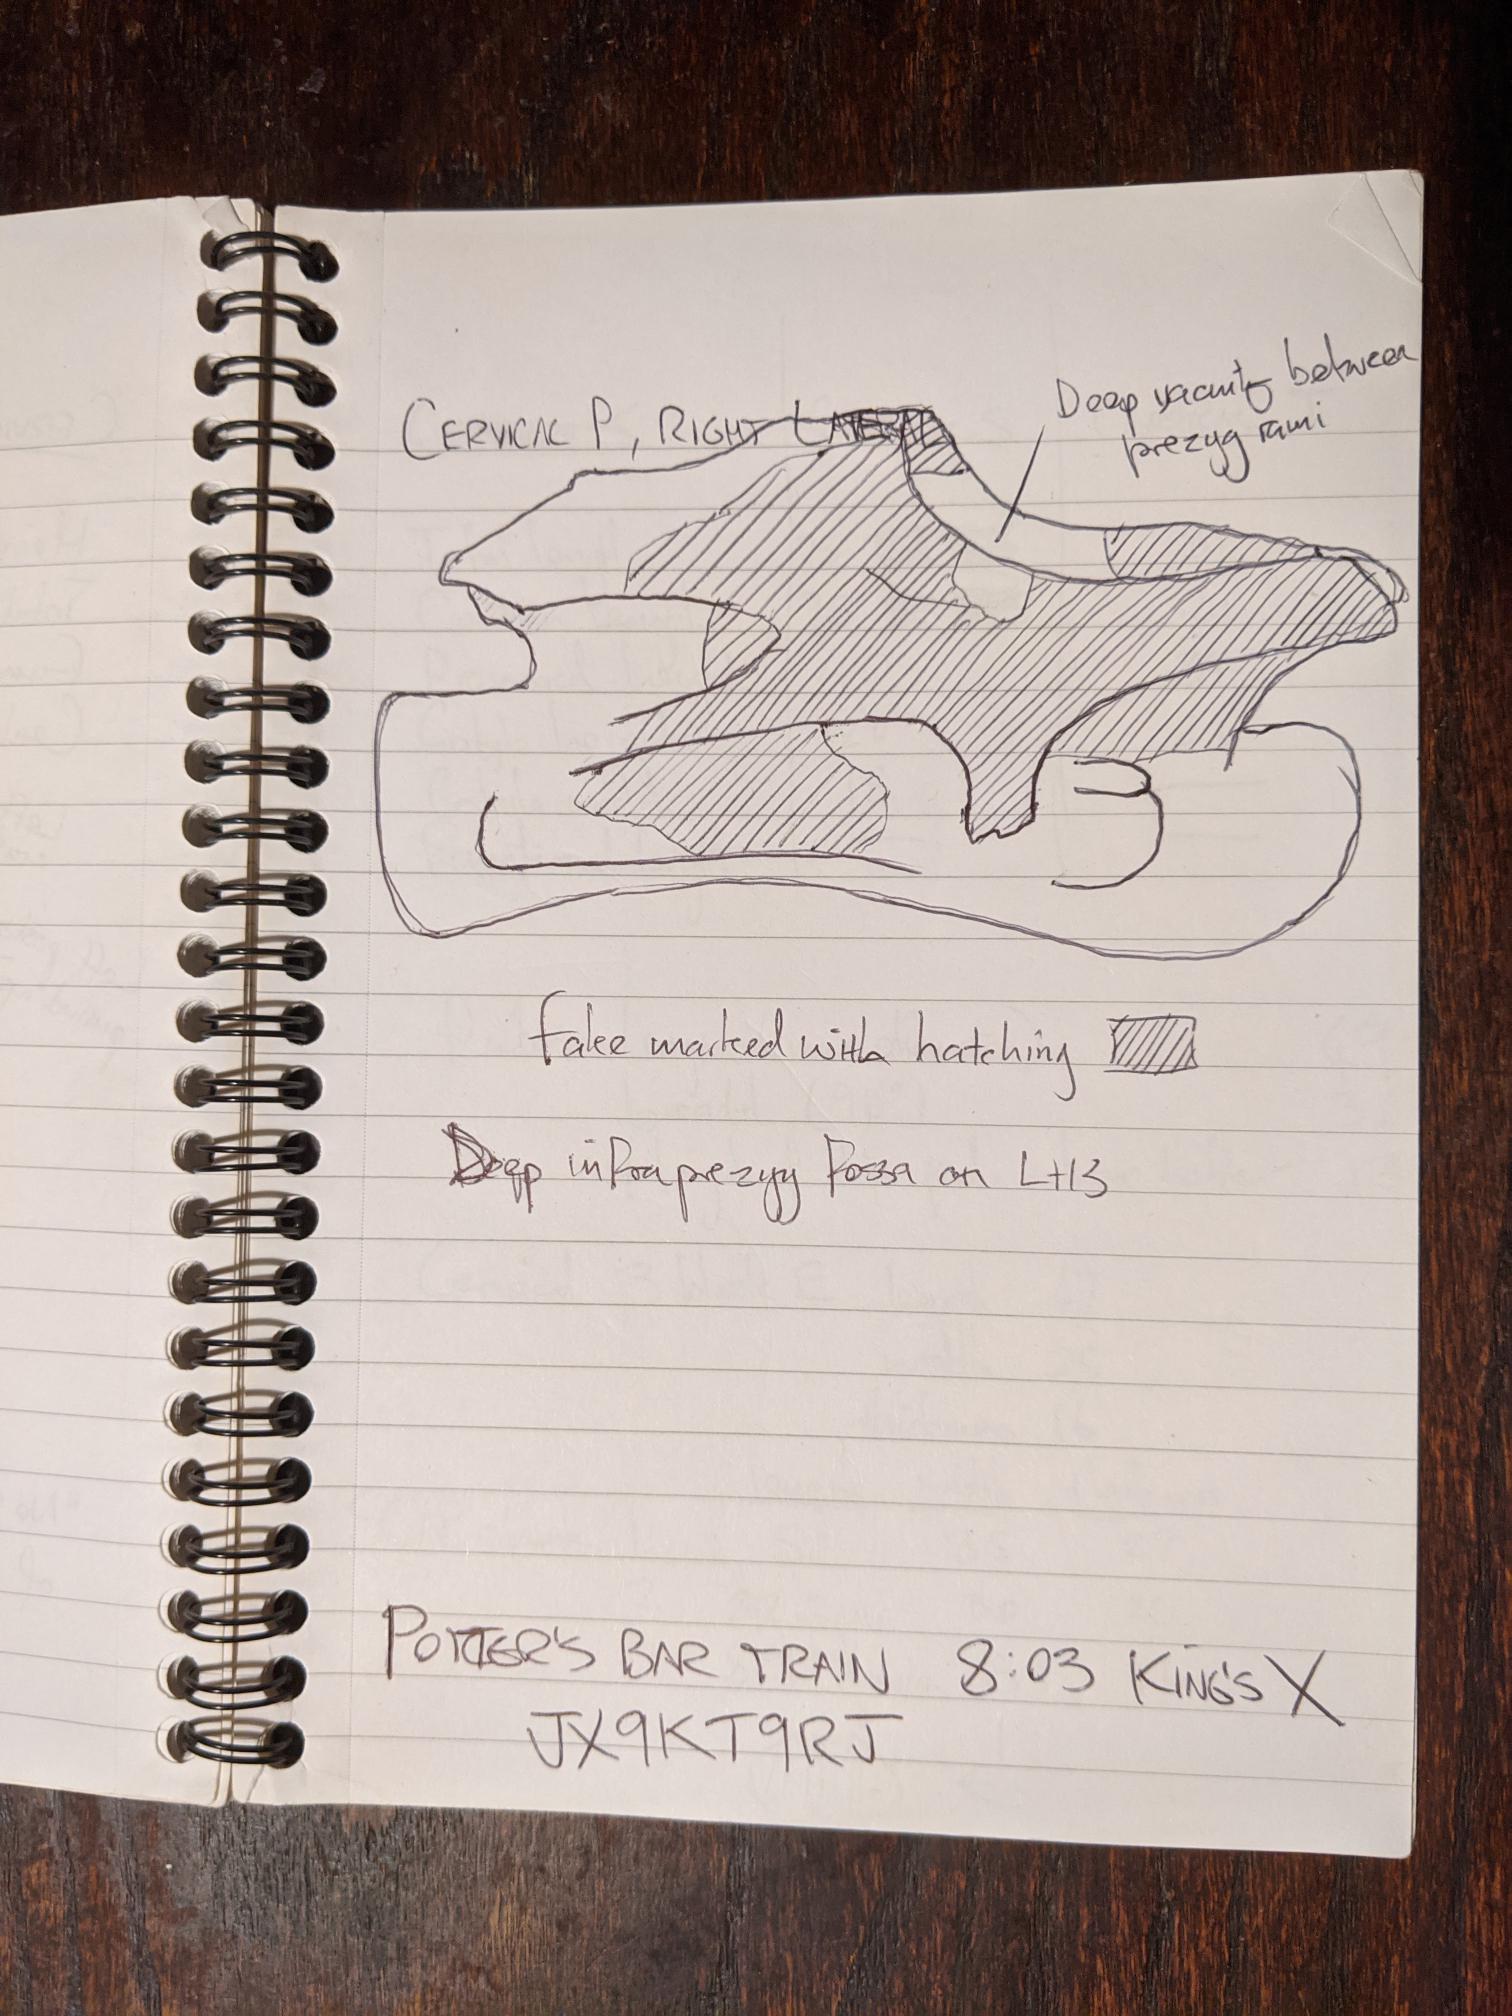 CERVICAL P, RIGHT LATERAL
Deep vacuity between
prezyg rami
fake marked with hatching
Deep infraprezyg fossa on LHS
POTTER'S BAR TRAIN 8:03 KING'S X
JX9KT9RJ